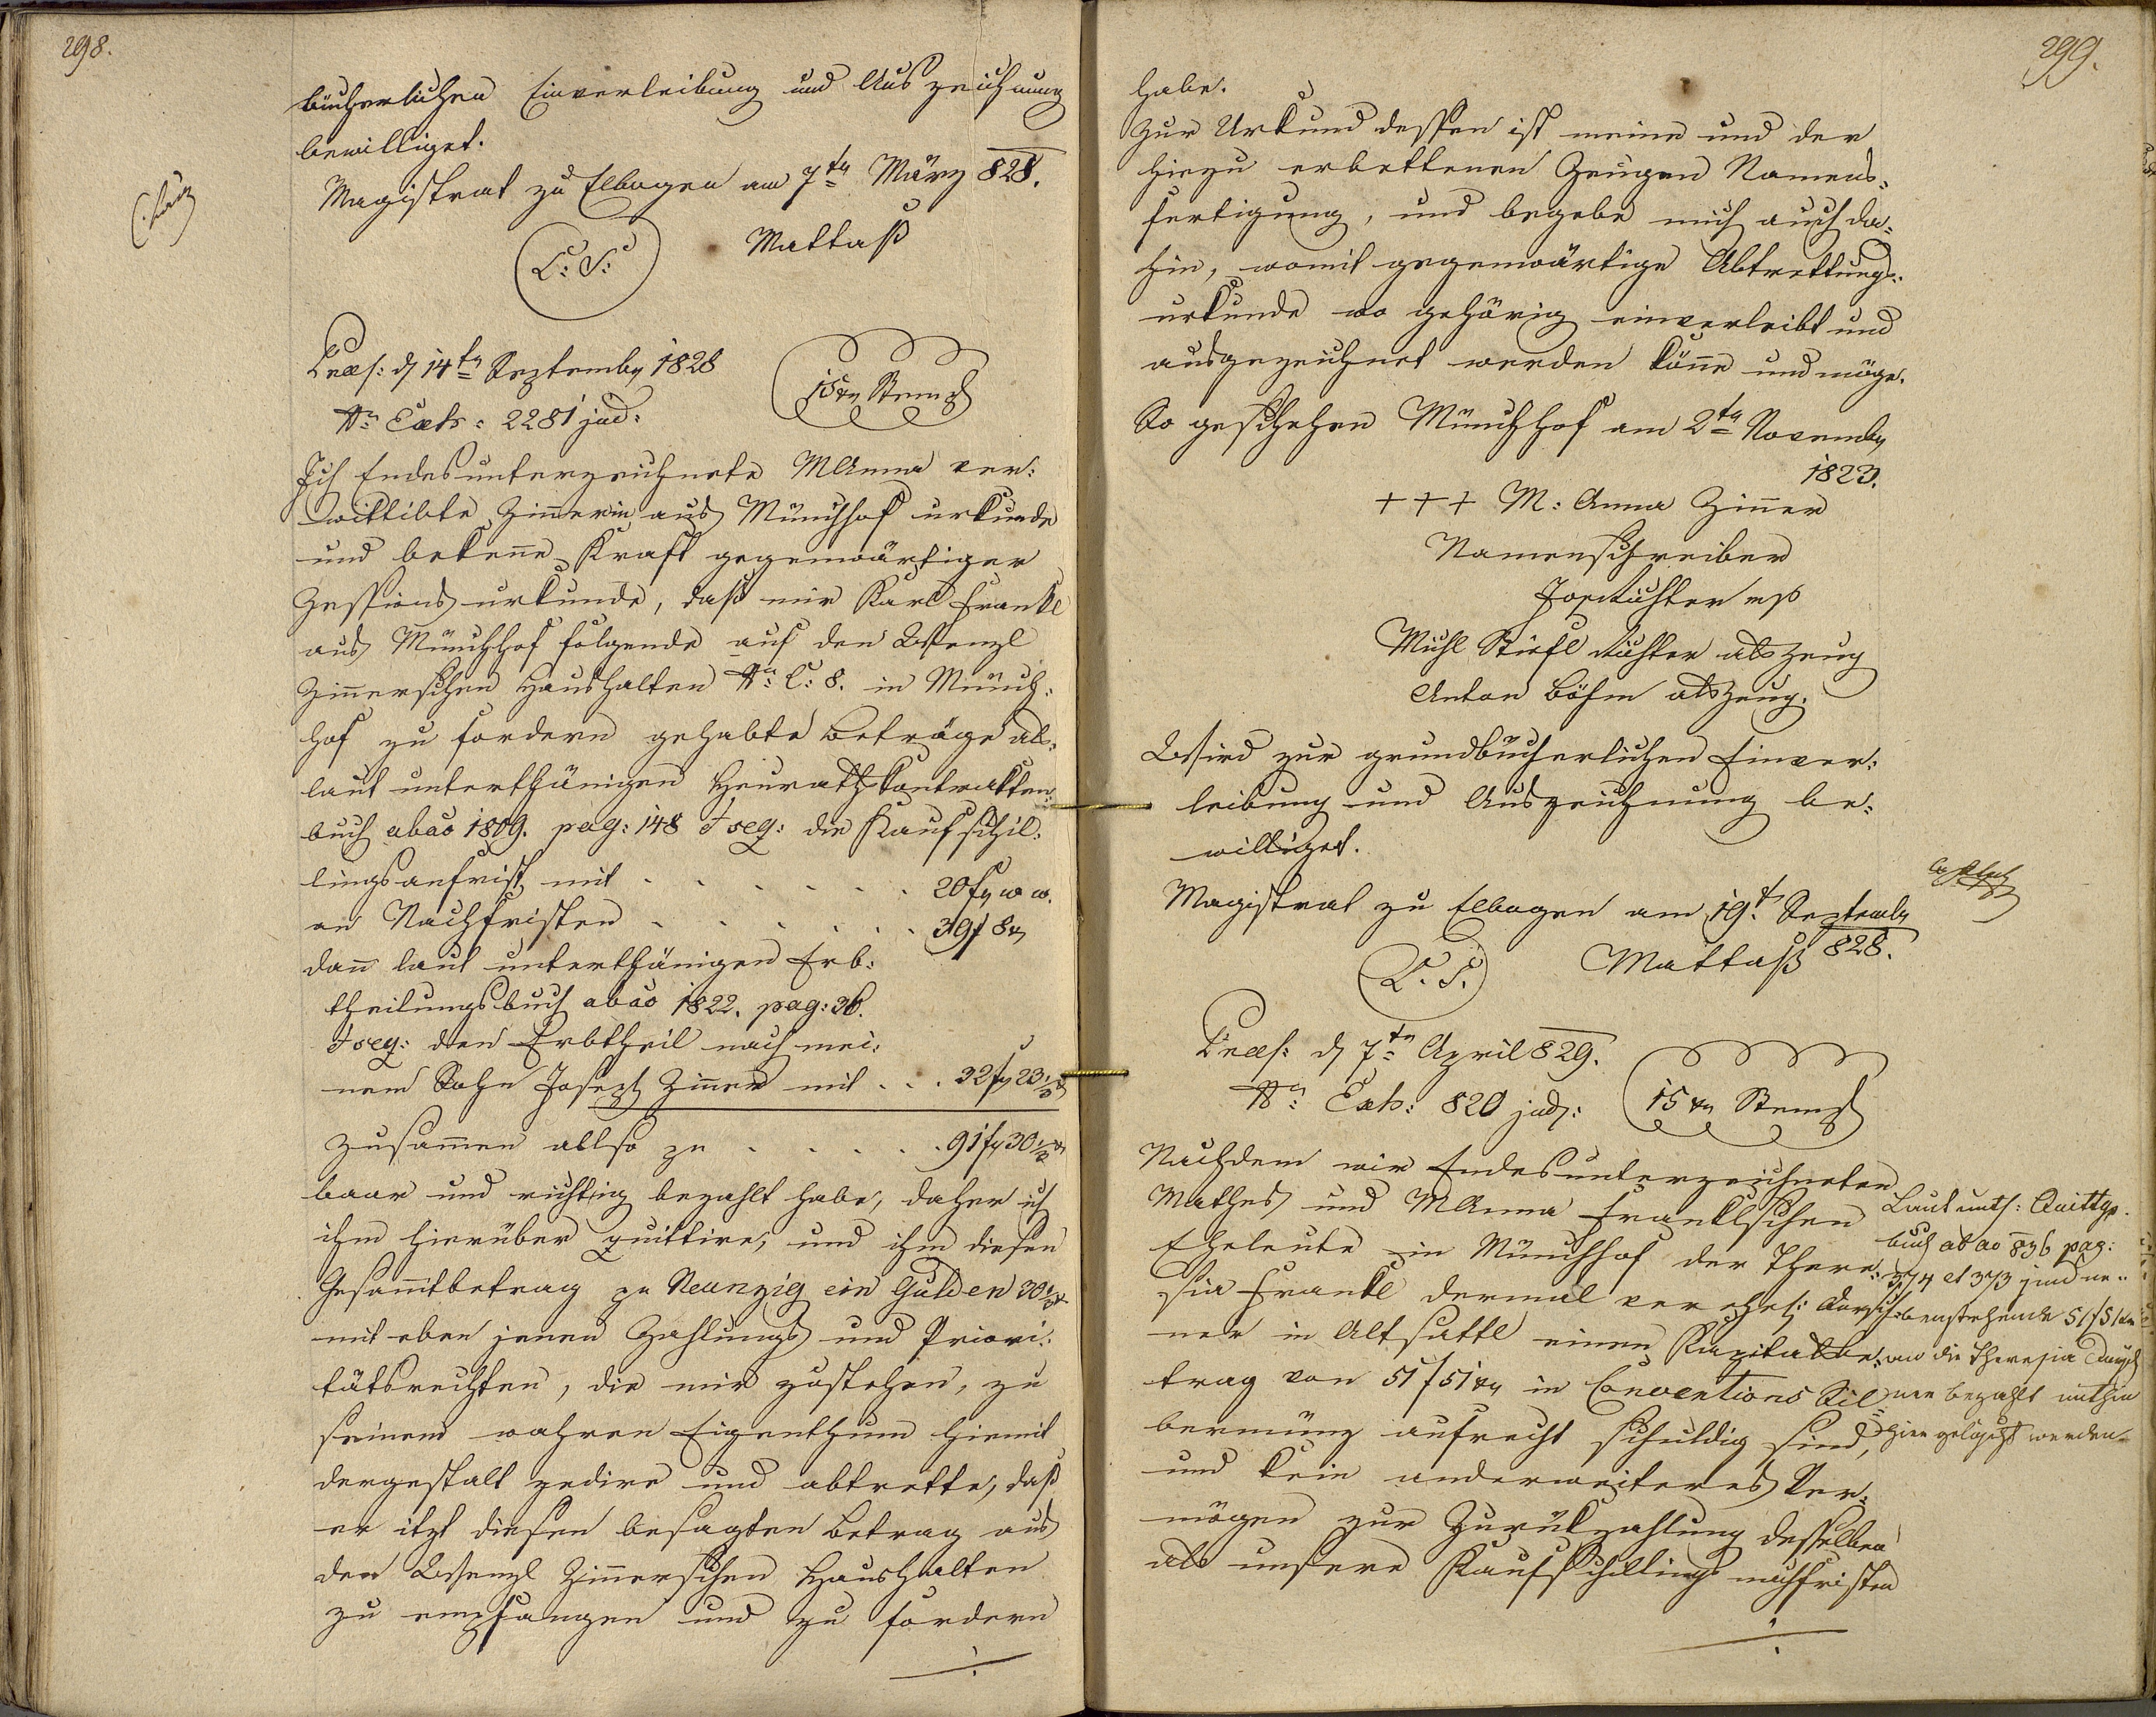 298.
bücherlichen Einverleibung und Auszeichnung
bewilliget.
Magistrat zu Elbogen am 7tn März 828.
L: S:
Mattaß
Præs: d 14tn Septembr 1828
Nr Exh: 2281 jud:
15 xr Stempl
Ich Endesunterzeichnete MAnna ver:
wittibte Zinnerin aus Münchhof urkunde
und bekenne Kraft gegenwärtiger
Zessions urkunde, daß mir Karl Frankl
aus Münchhof folgende auf den Wenzl
Zinnerschen Haushalten Nr C: 8. in Münch:
hof zu fordern gehabte Beträge als:
laut unterthänigen Heuraths Kontrakten:
buch ab ao 1809. pag: 148 et seq: die Kaufschil:
lingsanfrist mit . . . . . . . 20 f w w.
an Nachfristen . . . . . . 39 f 8 x
dann laut unterthänigen Erb:
theilungsbuch ab ao 1822. pag: 36.
et seq: den Erbtheil nach mei:
nem Sohn Joseph Zinner mit . . . 32 f 23 1/2 x
Zusammen allso zu . . . . . 91 f 30 1/2 x
baar und richtig bezahlt habe, daher ich
ihm hierüber quittire, und ihm diesen
Gesammtbetrag zu Neunzig ein Gulden 30 1/2 x
mit eben jenen Zahlungs und Priori:
tätsrechten, die mir zustehen, zu
seinem wahren Eigenthum hiemit
dergestalt zedire und abtrette, daß
er itzt diesen besagten Betrag aus
den Wenzl Zinnerschen Haushalten
zu empfangen und zu fordern
299.
habe.
Zur Urkund dessen ist meine und der
hiezu erbettenen Zeugen Namens:
fertigung, und begebe mich auch da:
hin, womit gegenwärtige Abtrettungs:
urkunde wo gehörig einverleibt und
ausgezeichnet werden könne und möge.
So geschehen Münchhof am 2tn Novembr
1823.
+ + + M: Anna Zinner
Namenschreiber
Jos Richter mp
Michl Stiefl Richter als Zeug
Anton Böhm als Zeug.
Wird zur grundbücherlichen Einver:
leibung und Auszeichnung be:
williget.
Magistrat zu Elbogen am 19t Septembr
828.
L. S.
Mattaß
Præs: d 7tn April 829.
Nr Exh: 820 jud:
15 xr Stempl
Nachdem wir Endesunterzeichneten
Mathes und MAnna Franklschen
Eheleute in Münchhof der There:
sia Frankl dermal verehel:
ner in Altsattl einen Kapitalbe:
trag von 51 f 51 xr in Conventions Sil
bermünz aufrecht schuldig sind,
und kein anderweiteres Ver:
mögen zur Zurükzahlung desselben
als unsere Kaufschillings nachfristen
Laut unth: Quittgs.
buch ab ao 836 pag:
374 et 373 sind ne:
benstehende 51 f 51 xr
an die Theresia
ner bezahlt mithin
hier gelöscht werden